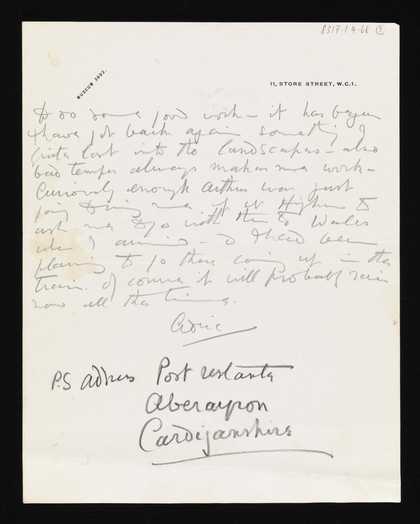 8317.1.4.68
MUSEUM 3893.
11, STORE STREET, W.C.1.
to do some good work – it has begun
& have got back again something I
lost into the landscapes – also
bad temper always makes me work –
Curiously enough Arthur was just
going to ring me up at Higham to
ask me to go with them to Wales
when I arrived – & I had been
planning to go there coming up in the
train. Of course it will probably rain
now all the time.
Cedric
P.S adress Post restante
Aberayron
Cardiganshire